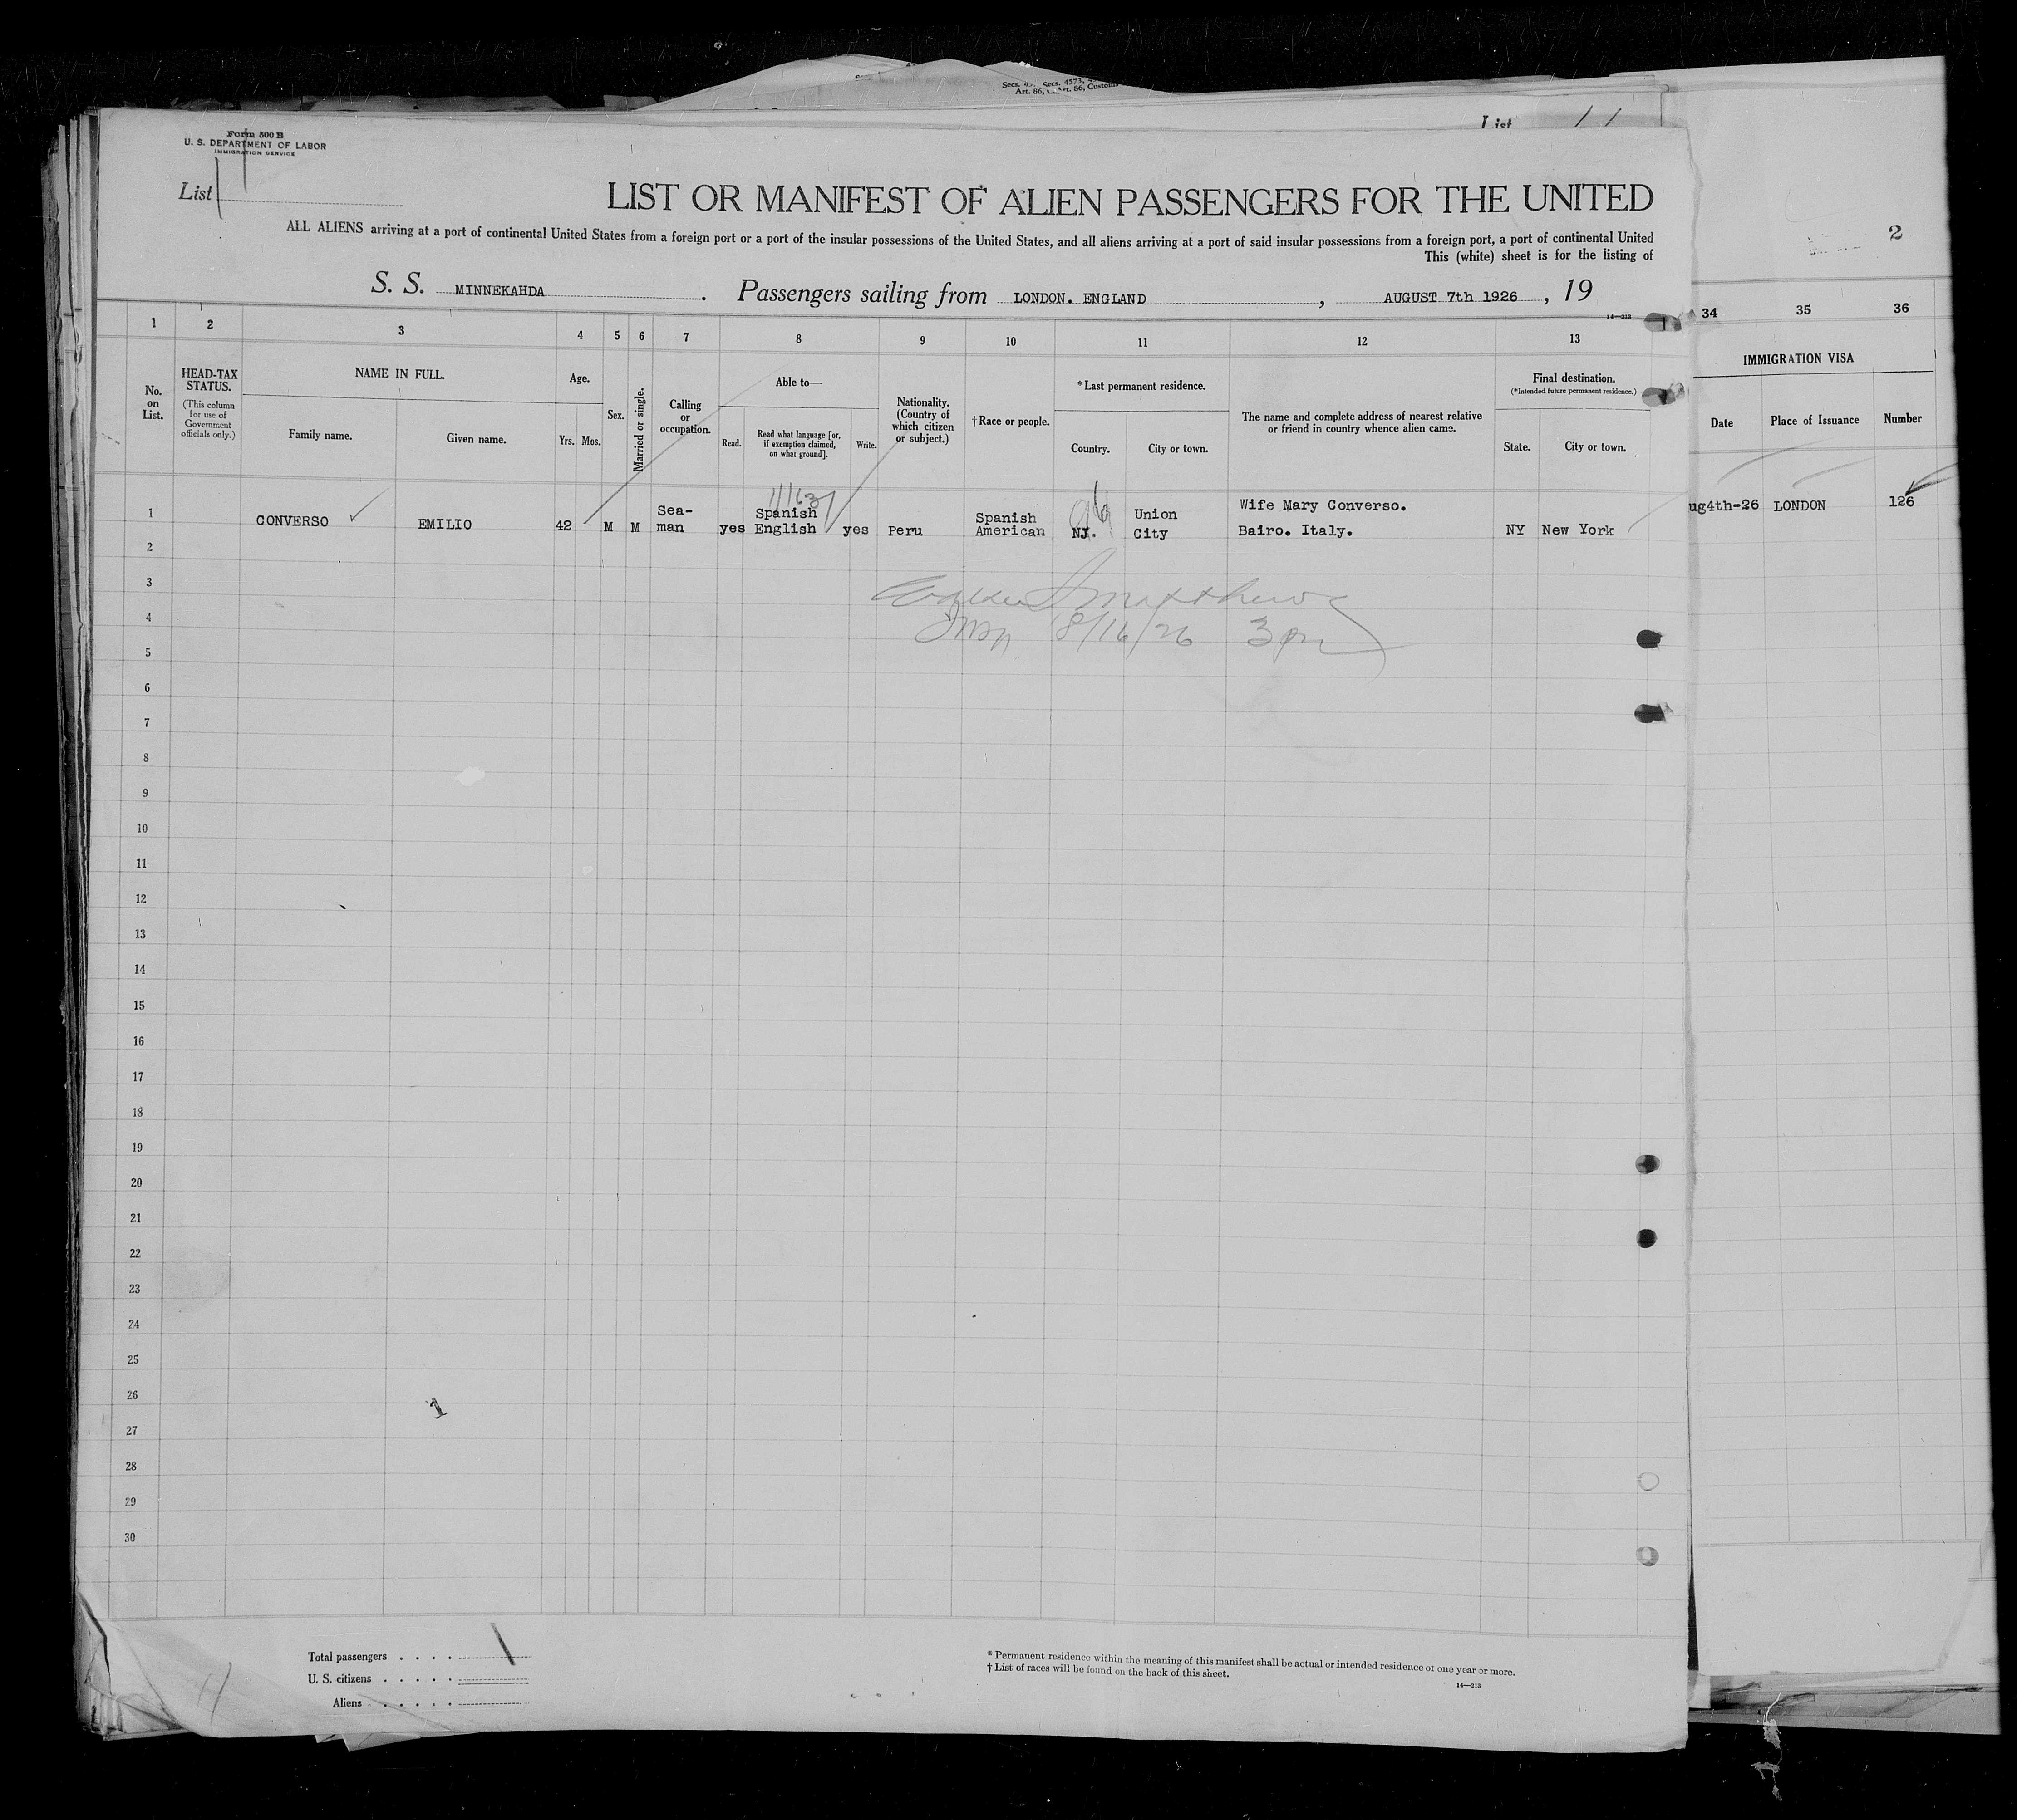 Secs. 4573,
Art. 86, Customs
List
Form 500 B
U. S. DEPARTMENT OF LABOR
IMMIGRATION SERVICE
List
LIST OR MANIFEST OF ALIEN PASSENGERS FOR THE UNITED
ALL ALIENS arriving at a port of continental United States from a foreign port or a port of the insular possessions of the United States, and all aliens arriving at a port of said insular possessions from a foreign port, a port of continental United
This (white) sheet is for the listing of
2
S. S. MINNEKAHDA. Passengers sailing from LONDON. ENGLAND, AUGUST 7th 1926, 19
14—213
1 2 3 4 5 6 7 8 9 10 11 12 13 34 35 36
No. on List.
HEAD-TAX STATUS.
(This column for use of Government officials only.)
NAME IN FULL.
Family name. Given name.
Age.
Yrs. Mos.
Sex.
Married or single.
Calling or occupation.
Able to—
Read. Read what language [or, if exemption claimed, on what ground]. Write.
Nationality. (Country of which citizen or subject.)
†Race or people.
*Last permanent residence.
Country. City or town.
The name and complete address of nearest relative or friend in country whence alien came.
Final destination.
(*Intended future permanent residence.)
State. City or town.
IMMIGRATION VISA
Date Place of Issuance Number
1 CONVERSO EMILIO 42 M M Sea-man yes Spanish English yes Peru Spanish American NJ. Union City Wife Mary Converso. Bairo. Italy. NY New York ug4th-26 LONDON 126
2
3
4
Insp 8/16/26 3 pm
5
6
7
8
9
10
11
12
13
14
15
16
17
18
19
20
21
22
23
24
25
26
1
27
28
29
30
Total passengers
U. S. citizens
Aliens
11
* Permanent residence within the meaning of this manifest shall be actual or intended residence of one year or more.
† List of races will be found on the back of this sheet.
14—213